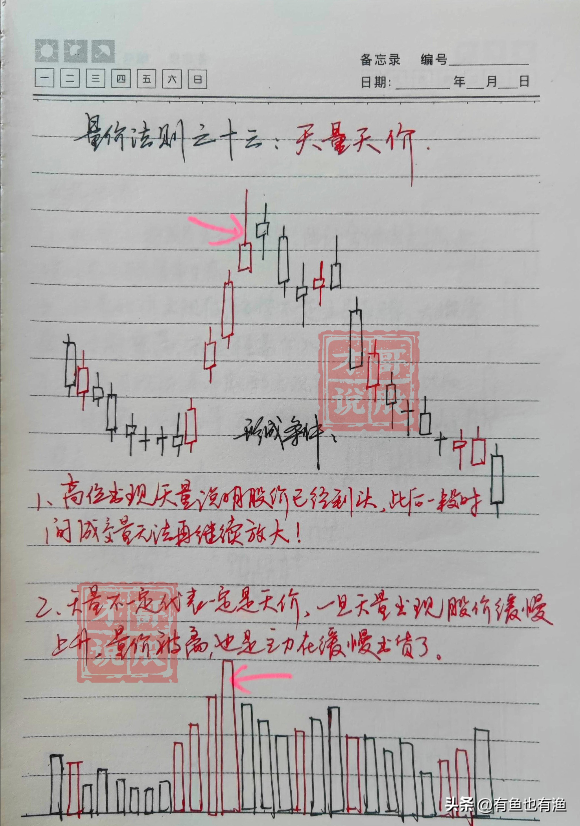 备忘录 编号
一 二 三 四 五 六 日
日期: 年 月 日
量价法则之十三：天量天价.
形成条件：
1、高位出现天量说明股价已经到头,此后一段时
间成交量无法再继续放大!
2、天量不一定代表一定是天价,一旦天量出现股价缓慢
上升,量价 离,也是主力在缓慢出货了。
头条 @有鱼也有渔